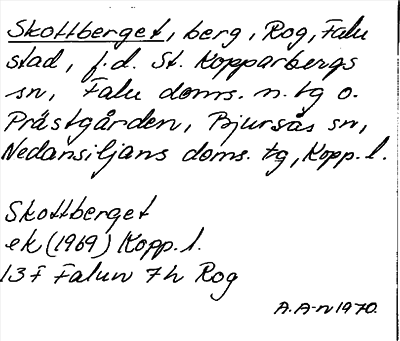 Skottberget, berg, Rog, Falu
stad, f.d. St. Kopparbergs
sn, Falu doms. n. tg o.
Prästgården, Bjursås sn,
Nedansiljans doms. tg, Kopp. l.
Skottberget
ek (1969) Kopp. l.
13 F Falun 7h Rog
A. A-n 1970.